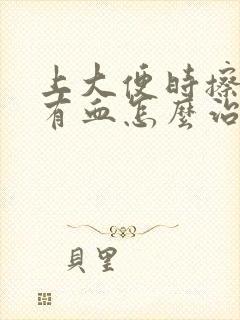 上大便时擦
有血怎麽治
貝里